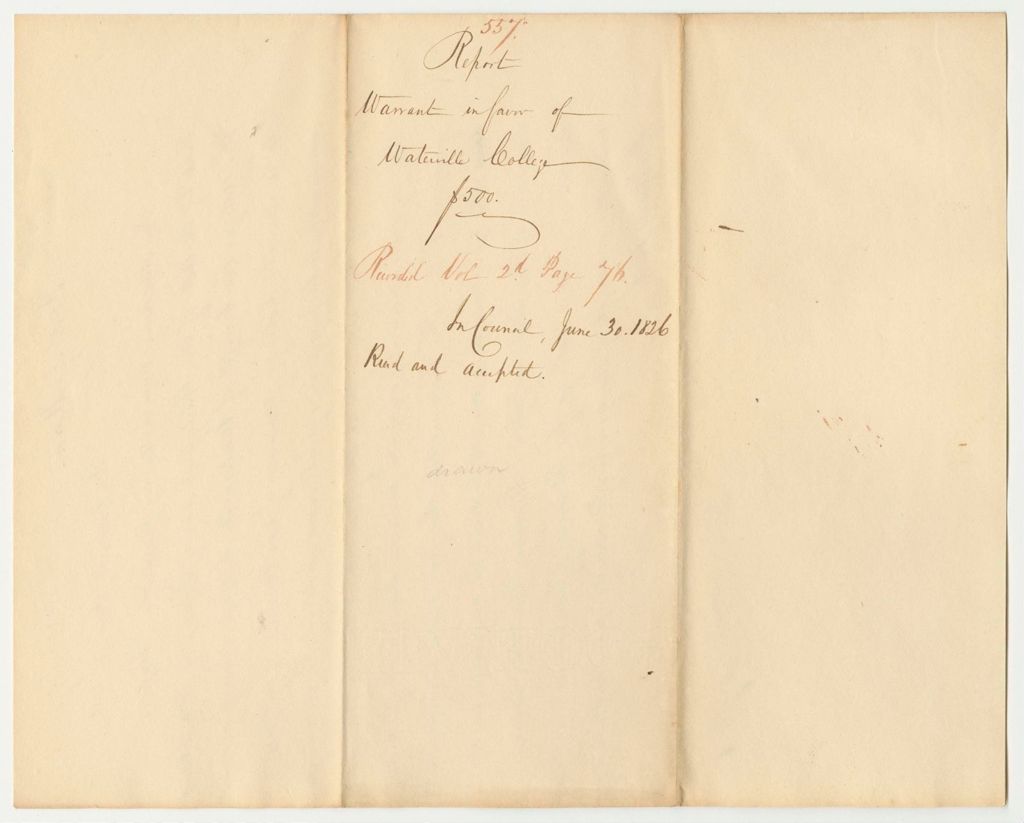 557.
Report
Warrant in favor of
Waterville College
$500.
Recorded Vol 2d. Page 76.
In Council, June 30. 1826
Read and accepted.
drawn